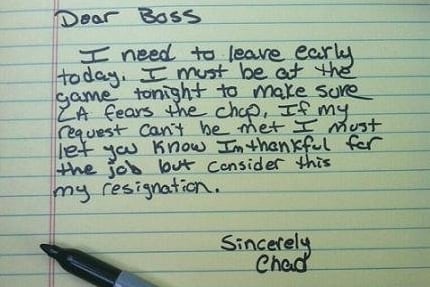 Dear Boss
I need to leave early
today. I must be at the
game tonight to make sure
LA fears the chop. If my
request can't be met I must
let you know Im thankful for
the job but consider this
my resignation.
Sincerely
Chad